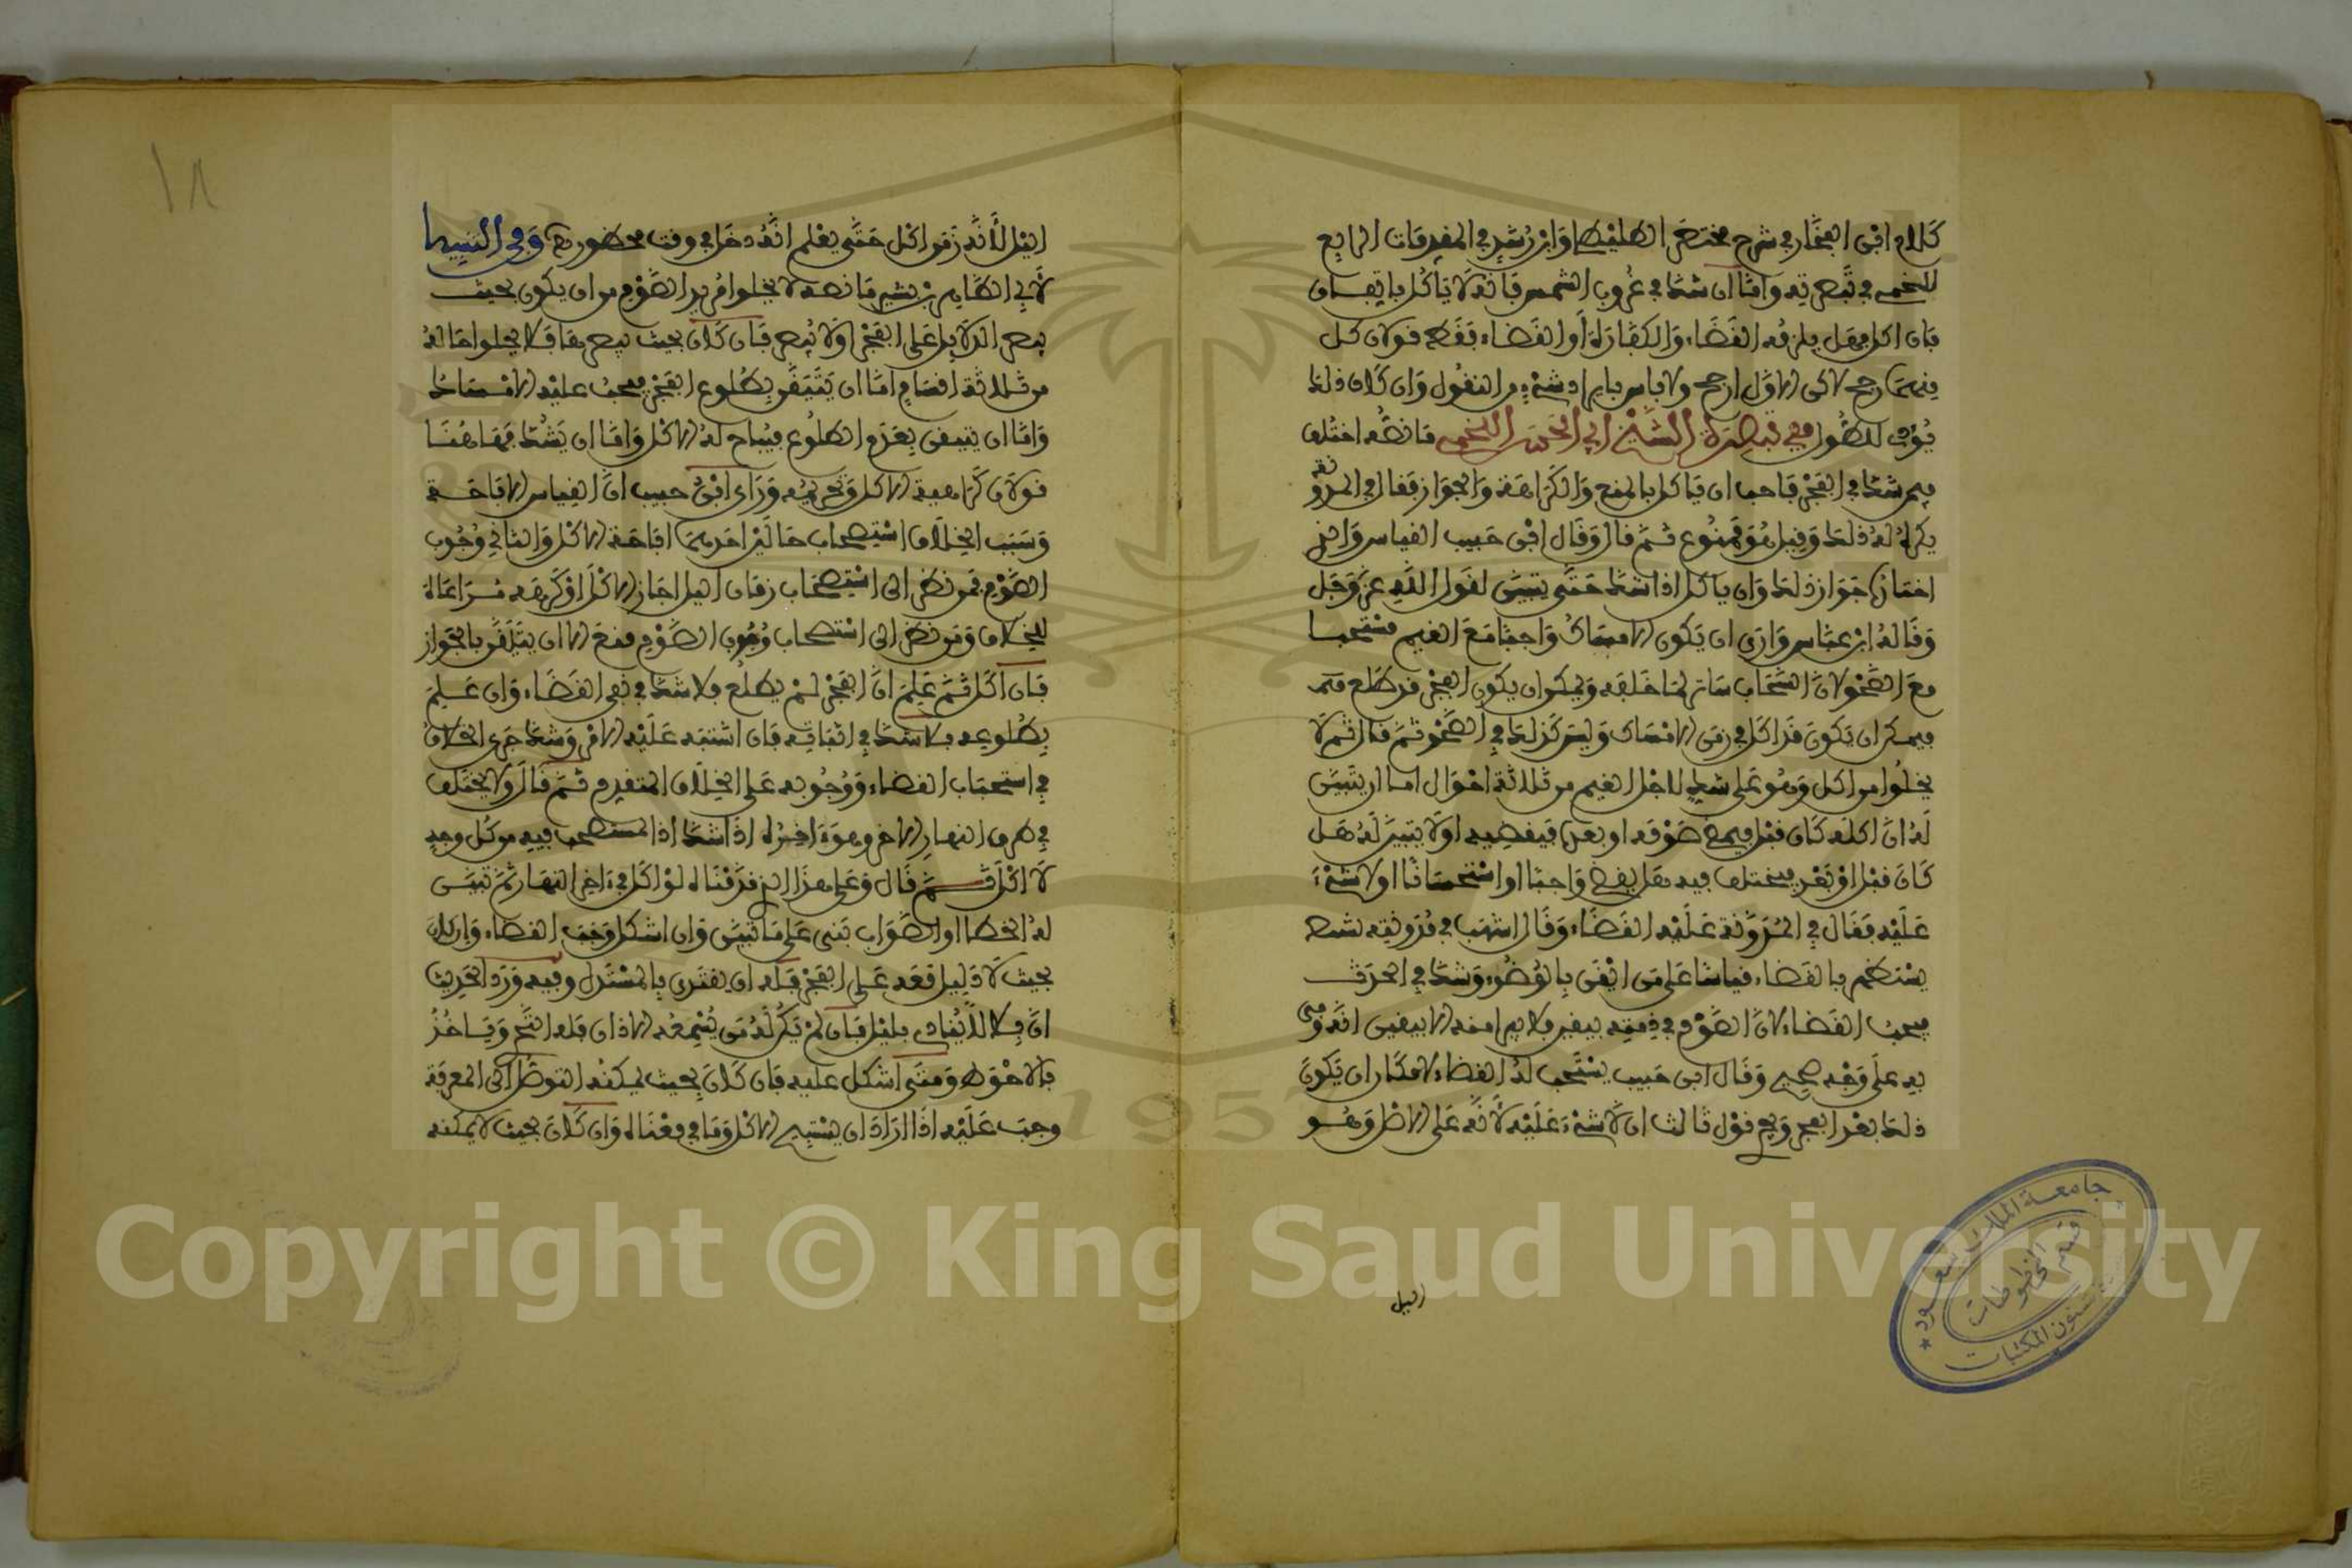 كلام ابن الفخار في شرح مختصر الطليطلي وابن رشد في المقدمات الرابع
للخمي في تبصرته وأما إن شك في غروب الشمس فإنه لا يأكل باتفاق
فإن أكل فهل يلزمه القضاء والكفارة أو القضاء فقط قولان كل
منهما رجح لاكن الأول أرجح ولا باس بإيراد شيء من النقول وإن كان ذلك
يؤدي للطول وفي تبصرة الشيخ أبي الحسن اللخمي ما نصه اختلف
فيمن شك في الفجر فأحب أن يأكل بالمنع والكراهة والجواز فقال في المدونة
يكره له ذلك وقيل هو ممنوع ثم قال وقال ابن حبيب القياس والذي
جواز ذلك وأن يأكل إذا شك حتى يتبين لقول الله عز وجل
وقاله ابن عباس وأرى أن يكون الإمساك واجبا مع الغيم مستحبا
مع الصحو لأن السحاب ساتر لما خلفه ويمكن أن يكون الفجر قد طلع
فيمكن أن يكون قد أكل في زمن الإمساك وليس كذلك في الصحو ثم قال ثم لا
يخلوا من أكل وهو على شك لأجل الغيم من ثلاثة أحوال إما أن يتبين
له أن أكله كان قبل فيمضي صومه أو بعد فيقضيه أو لا يتبين له هل
كان قبل أو بعد فيختلف فيه هل يقضي واجبا أو استحسانا أو لا شيء
عليه فقال في المدونة عليه القضاء وقال أشهب في مدونته
يستظهر بالقضاء قياسا على من أيقن بالوضوء وشك في الحدث
يجب القضاء لأن الصوم في ذمته بيقين فلا يبرأ منه إلا بيقين أنه وفى
به على وجه صحيح وقال ابن حبيب يستحب له القضاء لإمكان أن يكون
ذلك بعد الفجر وفي قول ثالث أن لا شيء عليه لأنه على الأصل وهو
الليل
١٨
الليل لأنه زمن أكل حتى يعلم أنه دخل في وقت محظور وفي التنبيه
لأبي الطاهر بن بشير ما نصه لا يخلوا مريد الصوم من أن يكون بحيث
يبصر الدلايل على الفجر أو لا يبصر فإن كان بحيث يبصرها فلا يخلوا حاله
من ثلاثة أقسام إما أن يتيقن بطلوع الفجر فيجب عليه الإمساك
وإما أن يتيقن بعدم الطلوع فيباح له الأكل وإما أن يشك فهاهنا
قولان كراهية الأكل وتحريمه ورأى ابن حبيب أن القياس الإباحة
وسبب الخلاف استصحاب حالين أحدهما إباحة الأكل والثاني وجوب
الصوم فمن نظر إلى استصحاب زمان الليل أجاز الأكل أو كرهه مراعاة
للخلاف ومن نظر إلى استصحاب وجوب الصوم منع إلا أن يتيقن بالجواز
فإن أكل ثم علم أن الفجر لم يطلع فلا شك في نفي القضاء وإن علم
بطلوعه فلا شك في إثباته فإن اشتبه عليه الأمر وشك جرى الخلاف
في استحباب القضاء ووجوبه على الخلاف المتقدم ثم قال ولا يختلف
في طرف النهار الآخر وهو آخره إذا شك إذ المستصحب فيه من كل وجه
لا أكل ثم قال وعلى هذا الذي قدمناه لو أكل في آخر النهار ثم تبين
له الخطأ أو الصواب بنى على ما تبين وإن أشكل وجب القضاء وإن كان
بحيث لا دليل معه على الفجر فله أن يقتدي بالمستدل وفيه ورد الحديث
أن بلالا ينادي بليل فإن لم يكن له من يسمعه الأذان فله التحري ويأخذ
بالأحوط ومتى أشكل عليه فإن كان بحيث يمكنه التوصل إلى المعرفة
وجب عليه إذا أراد أن يستبيح الأكل وما في معناه وإن كان بحيث لا يمكنه
جامعة الملك سعود
قسم المخطوطات
شئون المكتبات
1957
Copyright © King Saud University